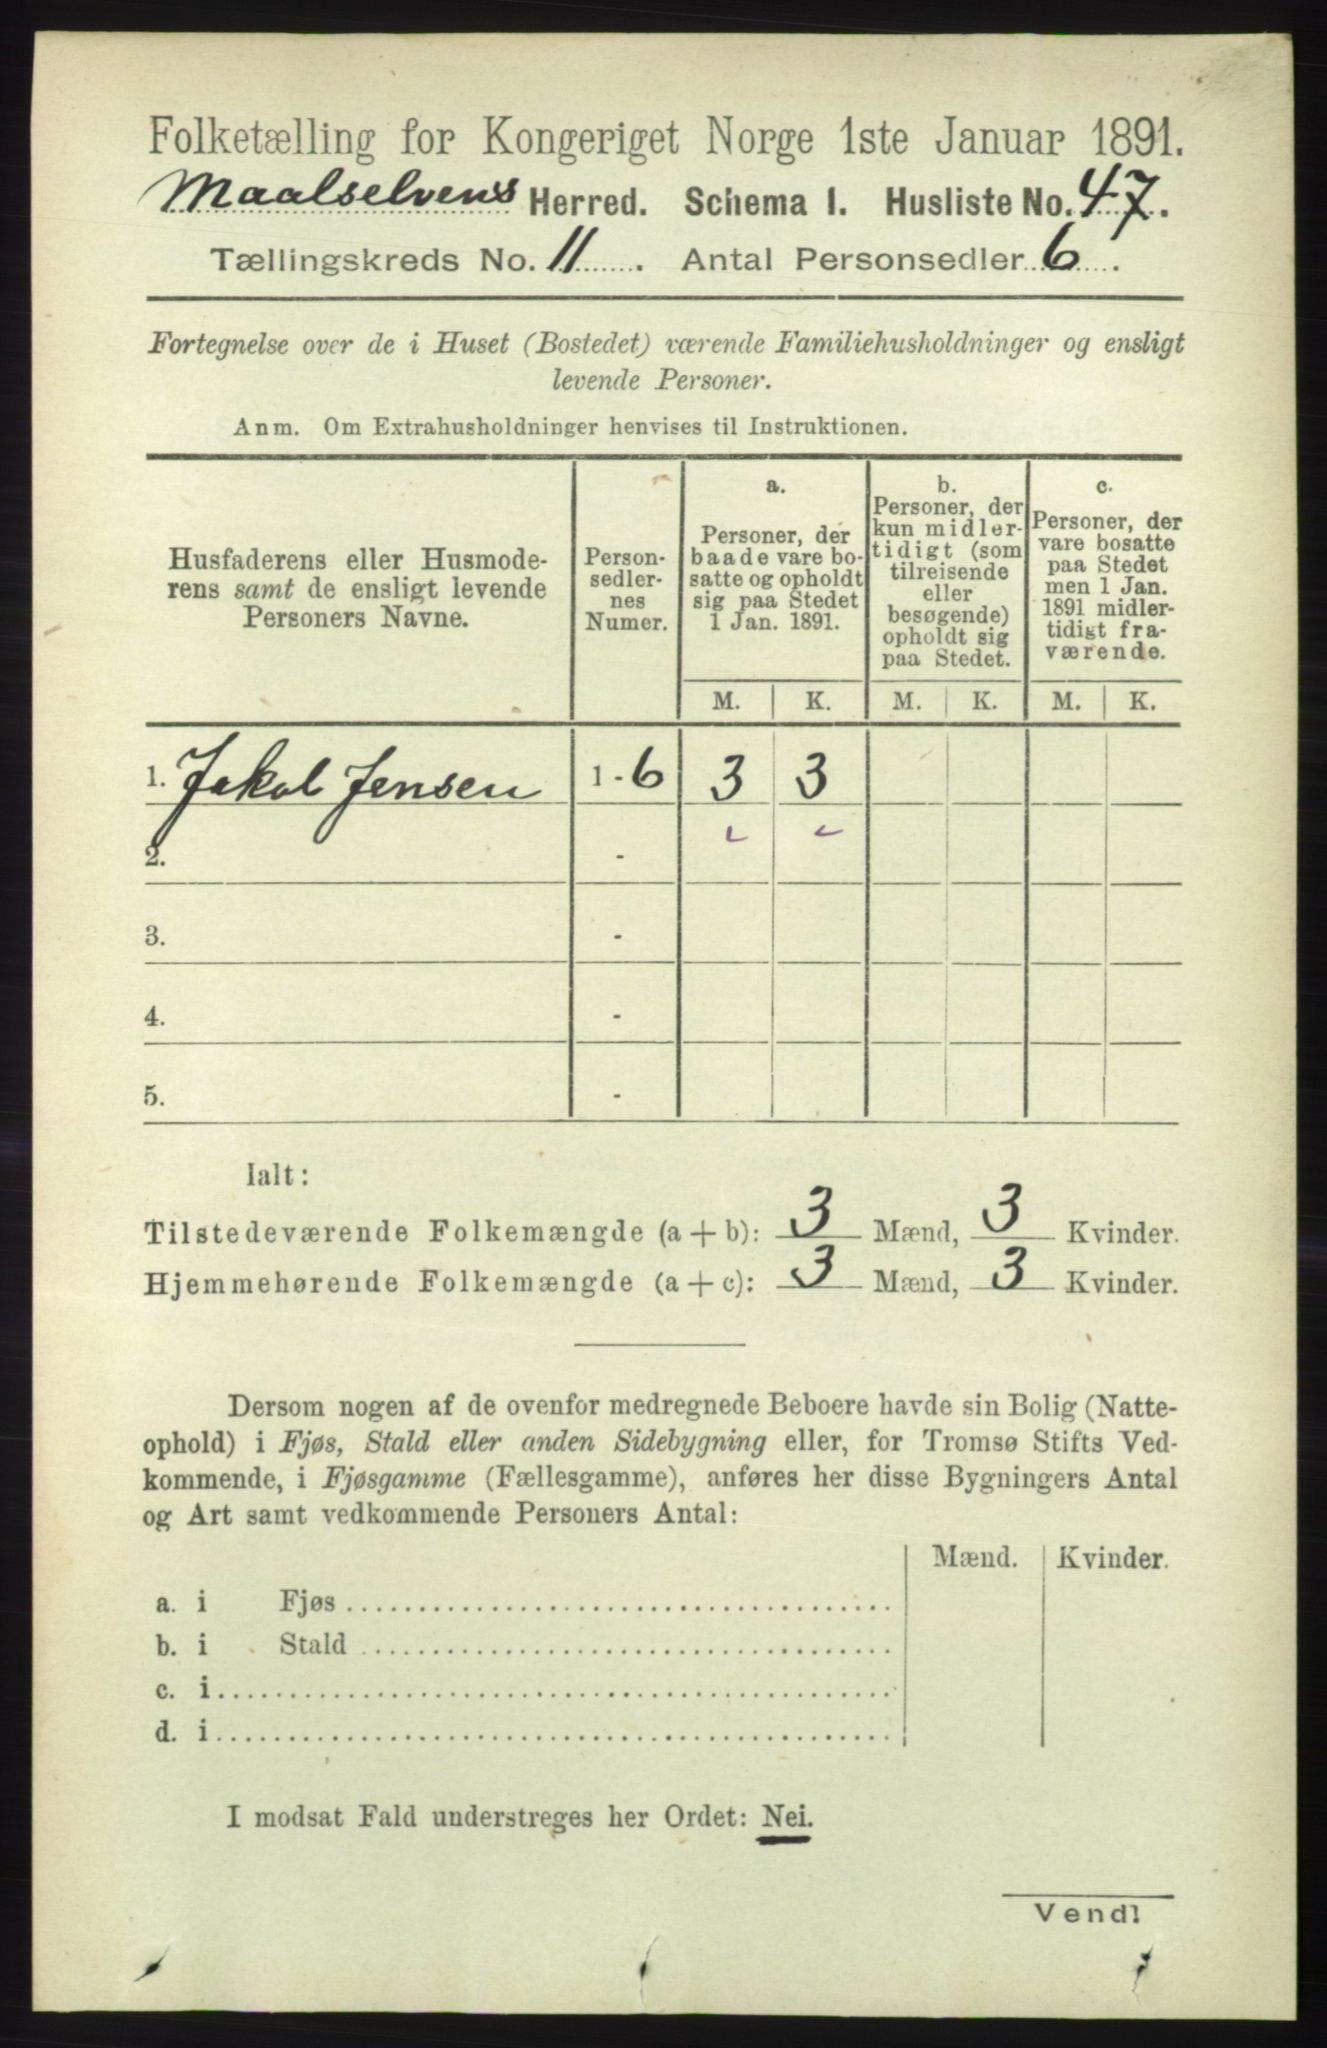 Folketælling for Kongeriget Norge 1ste Januar 1891.
Maalselvens Herred. Schema I. Husliste No. 47.
Tællingskreds No. 11. Antal Personsedler 6.
Fortegnelse over de i Huset (Bostedet) værende Familiehusholdninger og ensligt
levende Personer.
Anm. Om Extrahusholdninger henvises til Instruktionen.
Husfaderens eller Husmode-
rens samt de ensligt levende
Personers Navne.
Person-
sedler-
nes
Numer.
a.
Personer, der
baade vare bo-
satte og opholdt
sig paa Stedet
1 Jan. 1891.
b.
Personer, der
kun midler-
tidigt (som
tilreisende
eller
besøgende)
opholdt sig
paa Stedet.
c.
Personer, der
vare bosatte
paa Stedet
men 1 Jan.
1891 midler-
tidigt fra-
værende.
M. K. M. K. M. K.
1. Jakob Jensen 1 - 6 3 3
2. -
3. -
4. -
5. -
Ialt:
Tilstedeværende Folkemængde (a + b): 3 Mænd, 3 Kvinder.
Hjemmehørende Folkemængde (a + c): 3 Mænd, 3 Kvinder.
Dersom nogen af de ovenfor medregnede Beboere havde sin Bolig (Natte-
ophold) i Fjøs, Stald eller anden Sidebygning eller, for Tromsø Stifts Ved-
kommende, i Fjøsgamme (Fællesgamme), anføres her disse Bygningers Antal
og Art samt vedkommende Personers Antal:
Mænd. Kvinder.
a. i Fjøs
b. i Stald
c. i
d. i
I modsat Fald understreges her Ordet: Nei.
Vend!